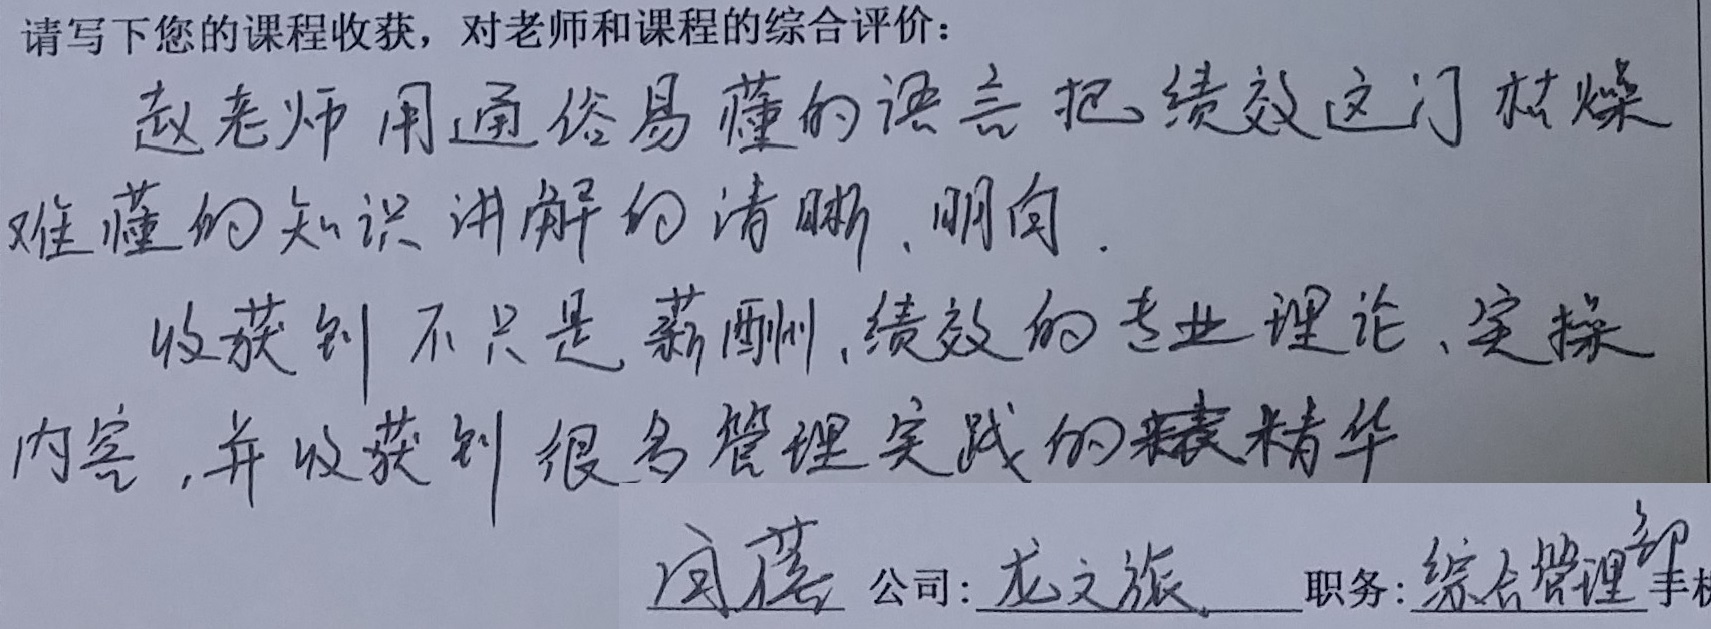 请写下您的课程收获，对老师和课程的综合评价：
赵老师用通俗易懂的语言把绩效这门枯燥
难懂的知识讲解的清晰、明白.
收获到不只是薪酬、绩效的专业理论、实操
内容，并收获到很多管理实践的精华
公司：龙文旅 职务：综合管理部 手